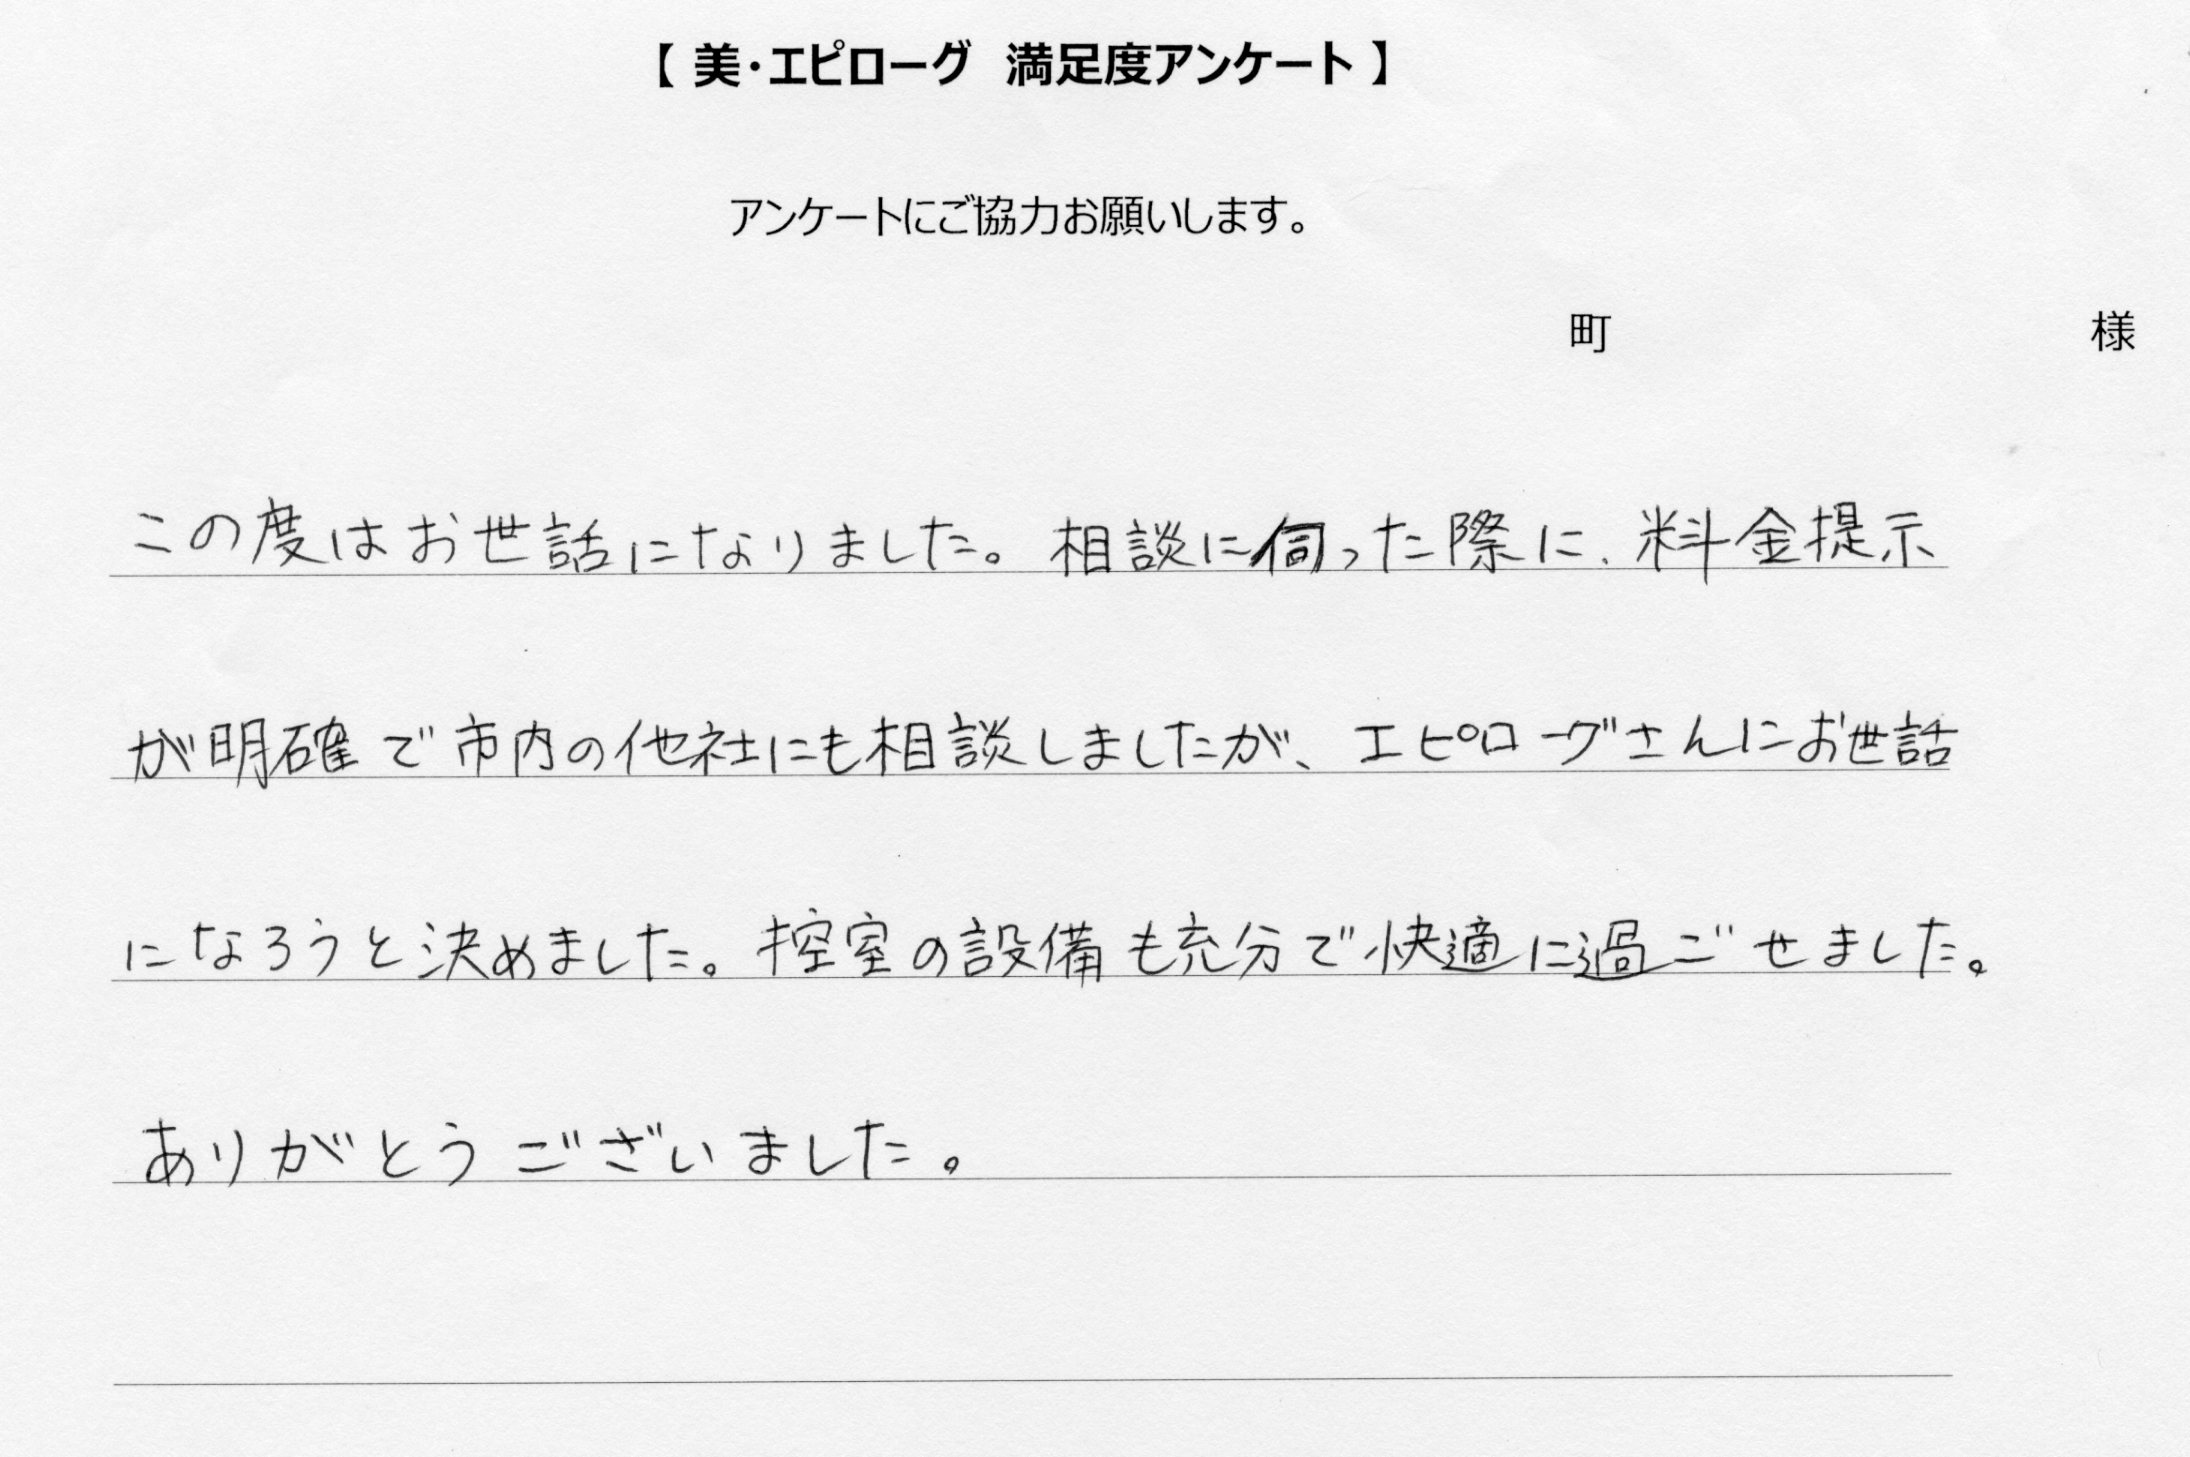 【 美・エピローグ　満足度アンケート 】
アンケートにご協力お願いします。
町　様
この度はお世話になりました。相談に伺った際に、料金提示
が明確で市内の他社にも相談しましたが、エピローグさんにお世話
になろうと決めました。控室の設備も充分で快適に過ごせました。
ありがとうございました。